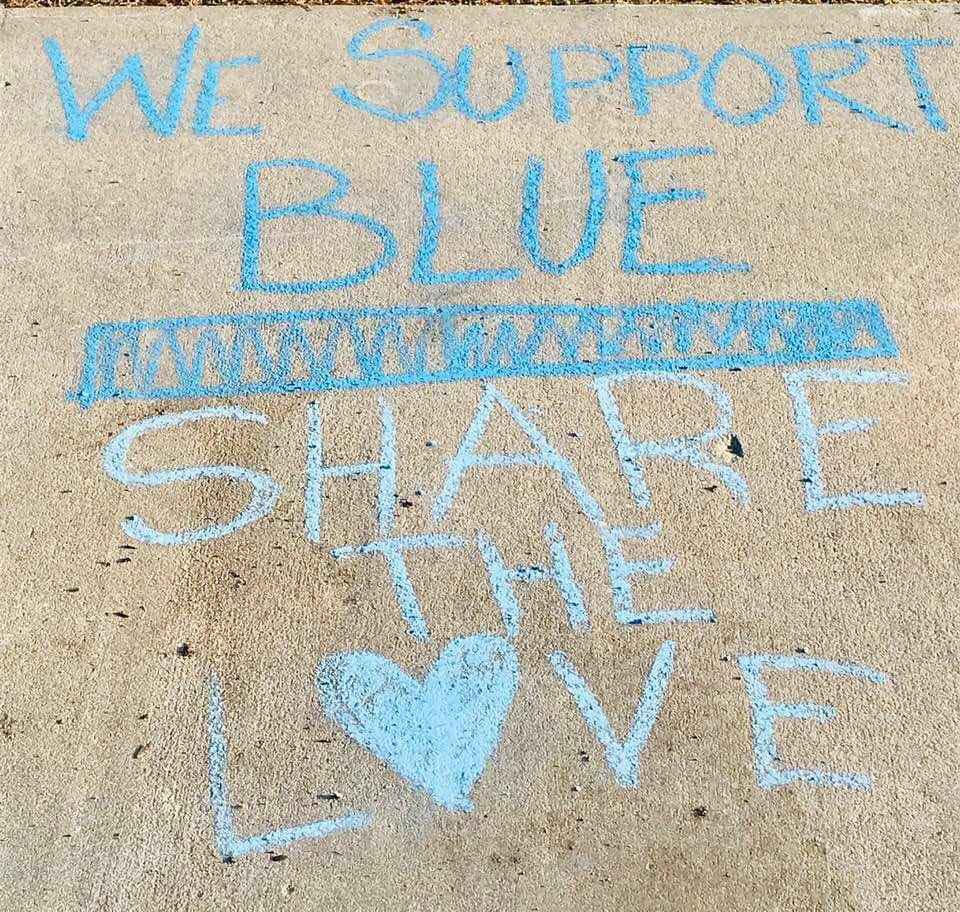 WE SUPPORT
BLUE
SHARE
THE
L♥VE